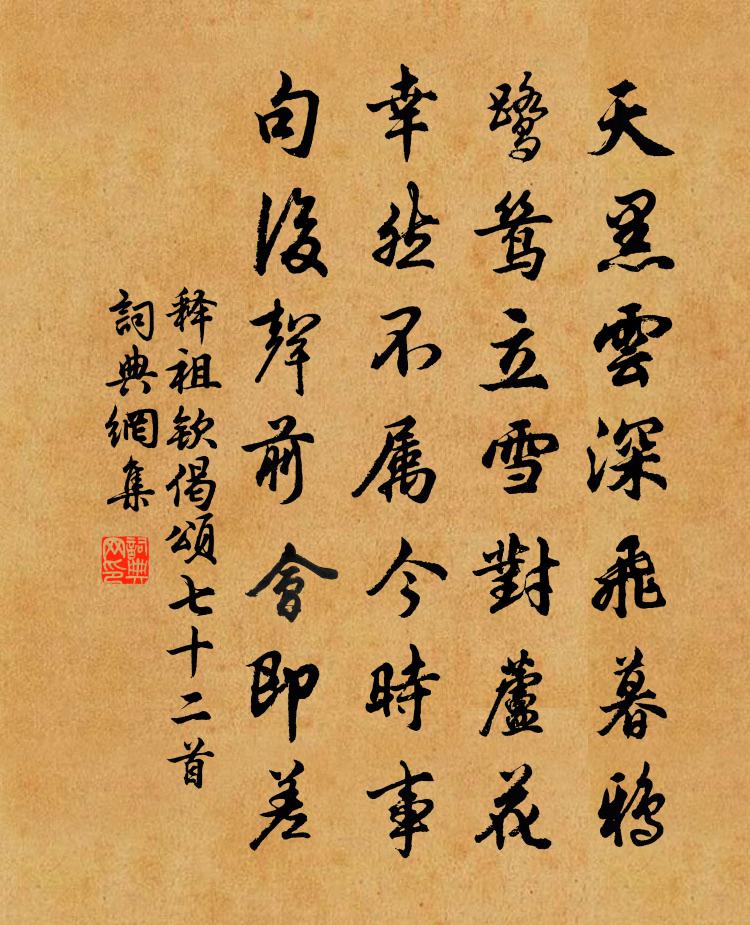 天黑雲深飛暮鴉
鷺鶿立雪對蘆花
幸然不属今時事
句後聲前會即差
释祖欽偈頌七十二首
詞典網集
詞典網印